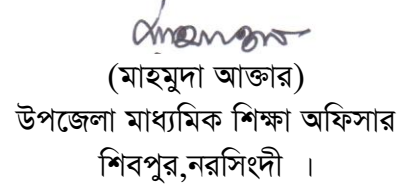 (মাহমুদা আক্তার)
উপজেলা মাধ্যমিক শিক্ষা অফিসার
শিবপুর,নরসিংদী ।